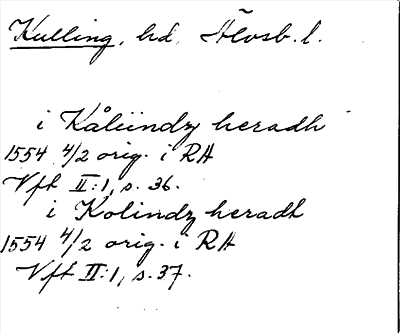 Kulling, hd. Älvsb. l.
i Kåliindz heradh
1554 4/2 orig. i RA
Vfk II:1, s. 36.
i Kolindz heradh
1554 4/2 orig. i RA
Vfk II:1, s. 37.